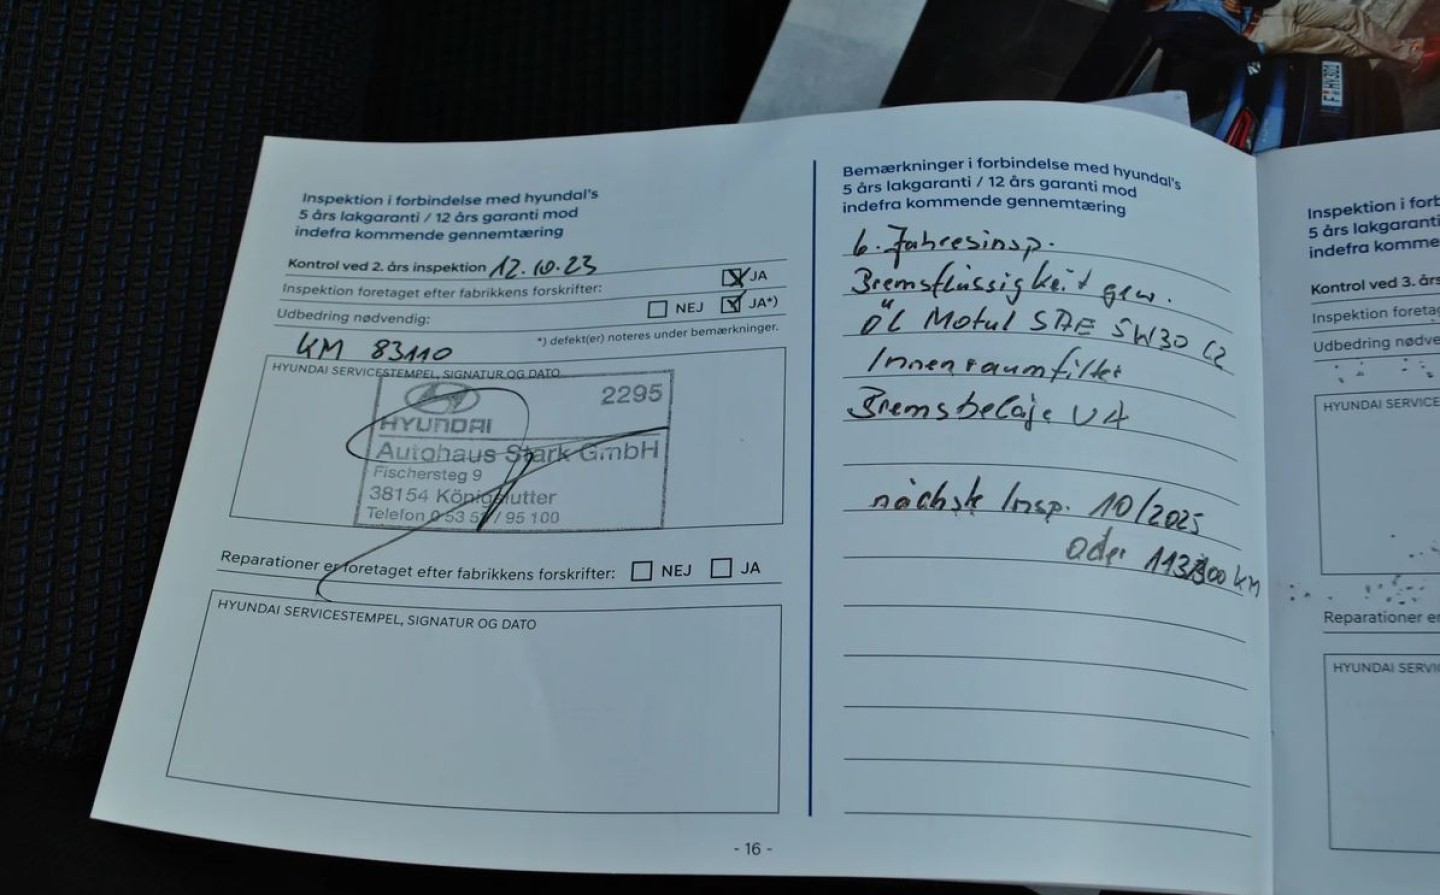 Inspektion i forbindelse med hyundai's
5 års lakgaranti / 12 års garanti mod
indefra kommende gennemtæring
Kontrol ved 2. års inspektion 12.10.23
Inspektion foretaget efter fabrikkens forskrifter:
JA
Udbedring nødvendig:
NEJ JA*)
*) defekt(er) noteres under bemærkninger.
KM 83110
HYUNDAI SERVICESTEMPEL, SIGNATUR OG DATO
2295
HYUNDAI
Autohaus Stark GmbH
Fischersteg 9
38154 Königslutter
Telefon 0 53 53 / 95 100
Reparationer er foretaget efter fabrikkens forskrifter: NEJ JA
HYUNDAI SERVICESTEMPEL, SIGNATUR OG DATO
- 16 -
Bemærkninger i forbindelse med hyundai's
5 års lakgaranti / 12 års garanti mod
indefra kommende gennemtæring
6. Jahresinsp.
Bremsflüssigkeit gew.
ÖL Motul SAE 5W30 C2
Innenraumfilter
Bremsbeläge VA
nächste Insp. 10/2025
oder 113100 KM
Inspektion i forb
5 års lakgaranti
indefra komme
Kontrol ved 3. års
Inspektion foretag
Udbedring nødve
HYUNDAI SERVICE
Reparationer er
HYUNDAI SERVI